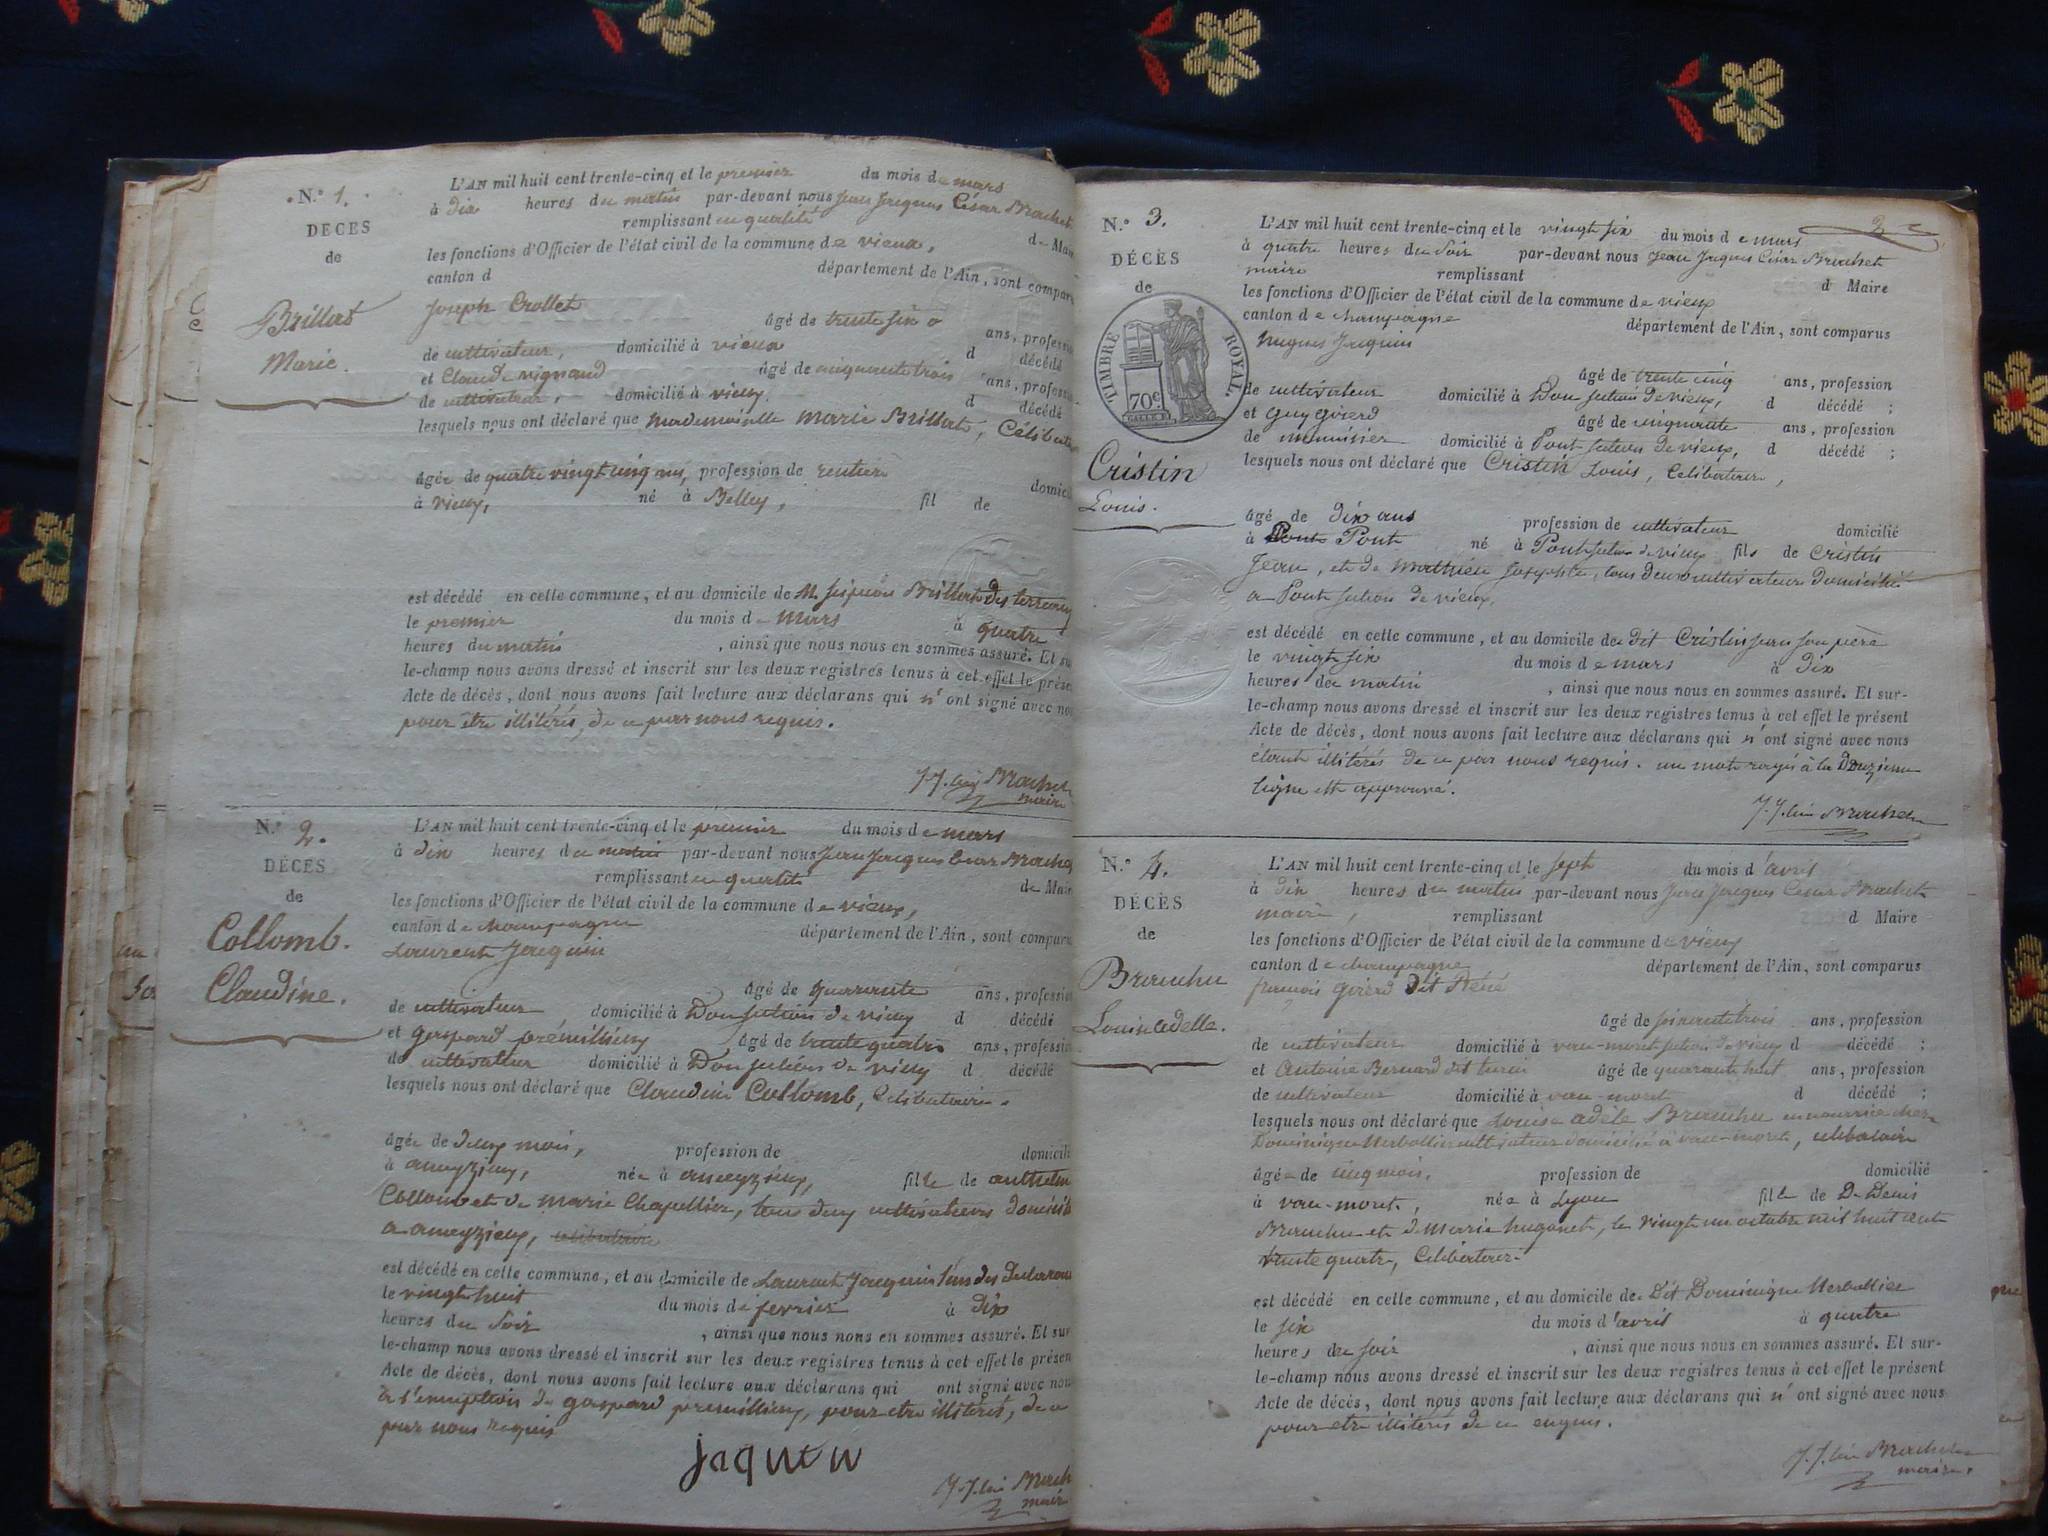 N.° 1.
DECES
de
Brillat
Marie.
L'AN mil huit cent trente-cinq et le premier du mois de mars
à dix heures du matin par-devant nous Jean Jacques César Brachet
remplissant en qualité de Mai
les fonctions d'Officier de l'état civil de la commune de vieux,
canton d département de l'Ain, sont compar
Joseph Crollet
âgé de trente six ans, profession
de cultivateur, domicilié à vieux d décédé
et Claude vignand âgé de cinquante trois ans, profession
de cultivateur, domicilié à vieux, d décédé
lesquels nous ont déclaré que Mademoiselle Marie Brillat, Célibataire
âgée de quatre vingt cinq ans, profession de rentière domicil
à vieux, né à Belley, fil de
est décédé en cette commune, et au domicile de M. Brillat des terreaux
le premier du mois de Mars à quatre
heures du matin, ainsi que nous nous en sommes assuré. Et su
le-champ nous avons dressé et inscrit sur les deux registres tenus à cet effet le prése
Acte de décès, dont nous avons fait lecture aux déclarans qui n'ont signé avec nou
pour être illitérés, de ce par nous requis.
J. J. César Brachet
maire
N.° 2.
DÉCÈS
de
Collomb.
Claudine.
L'AN mil huit cent trente-cinq et le premier du mois de mars
à dix heures du matin par-devant nous Jean Jacques César Brachet
remplissant en qualité de Mair
les fonctions d'Officier de l'état civil de la commune de vieux,
canton de champagne département de l'Ain, sont comparu
Laurent Jacquin
âgé de quarante ans, profession
de cultivateur, domicilié à Don section de vieux d décédé
et gaspard prémillieux âgé de trente quatre ans, profession
de cultivateur domicilié à Don section de vieux d décédé
lesquels nous ont déclaré que Claudine Collomb, Celibataire.
âgée de deux mois, profession de domicili
à ameyzieux, née à ameyzieux, fille de anthelme
Collomb et de marie Chapellier, tous deux cultivateurs domicilié
a ameyzieux, celibataire
est décédé en cette commune, et au domicile de Laurent Jacquin l'un des declarans
le vingt huit du mois de fevrier à dix
heures du soir, ainsi que nous nous en sommes assuré. Et sur
le-champ nous avons dressé et inscrit sur les deux registres tenus à cet effet le présen
Acte de décès, dont nous avons fait lecture aux déclarans qui ont signé avec nou
à l'exception de gaspard premillieux, pour etre illitérés, de ce
par nous requis
jaquen
J. J. César Brach
maire
N.° 3.
DÉCÈS
de
TIMBRE ROYAL.
70 c
Cristin
Louis.
2
L'AN mil huit cent trente-cinq et le vingt six du mois de mars
à quatre heures du soir par-devant nous Jean Jacques César Brachet
maire remplissant d Maire
les fonctions d'Officier de l'état civil de la commune de vieux
canton de champagne département de l'Ain, sont comparus
hugues Jacquin
âgé de trente cinq ans, profession
de cultivateur domicilié à Don section de vieux, d décédé ;
et guy goierd âgé de cinquante ans, profession
de menuisier domicilié à Pont section de vieux, d décédé ;
lesquels nous ont déclaré que Cristin Louis, Celibataire,
âgé de dix ans profession de cultivateur domicilié
à Pont Pont né à Pont section de vieux fils de Cristin
Jean, et de Mathieu Josephte, tous deux cultivateurs domicilié
a Pont section de vieux,
est décédé en cette commune, et au domicile du dit Cristin jean son père
le vingt six du mois de mars à dix
heures du matin, ainsi que nous nous en sommes assuré. Et sur-
le-champ nous avons dressé et inscrit sur les deux registres tenus à cet effet le présent
Acte de décès, dont nous avons fait lecture aux déclarans qui n'ont signé avec nous
étant illitérés de ce par nous requis. un mot rayé à la Douzieme
ligne est approuvé.
J. J. César Brachet
N.° 4.
DÉCÈS
de
Brauchu
Louise adelle.
L'AN mil huit cent trente-cinq et le sept du mois d'avril
à dix heures du matin par-devant nous Jean Jacques César Brachet
maire, remplissant d Maire
les fonctions d'Officier de l'état civil de la commune de vieux
canton de champagne département de l'Ain, sont comparus
francois goierd dit René
âgé de soixante trois ans, profession
de cultivateur domicilié à vau-moret section de vieux d décédé ;
et Antoine Bernard dit âgé de quarante huit ans, profession
de cultivateur domicilié à vau-moret d décédé ;
lesquels nous ont déclaré que Louise adèle Brauchu en nourrice chez
Dominique cultivateur domicilié à vau-moret, celibataire
âgée de cinq mois, profession de domicilié
à vau-moret, née à Lyon fille de De Denis
Brauchu et de Marie hugonet, le vingt un octobre mil huit cent
trente quatre, Celibataire.
est décédé en cette commune, et au domicile de Dit Dominique
le six du mois d'avril à quatre
heures du soir, ainsi que nous nous en sommes assuré. Et sur-
le-champ nous avons dressé et inscrit sur les deux registres tenus à cet effet le présent
Acte de décès, dont nous avons fait lecture aux déclarans qui n'ont signé avec nous
pour etre illiterés de ce enquis.
J. J. César Brachet
maire.